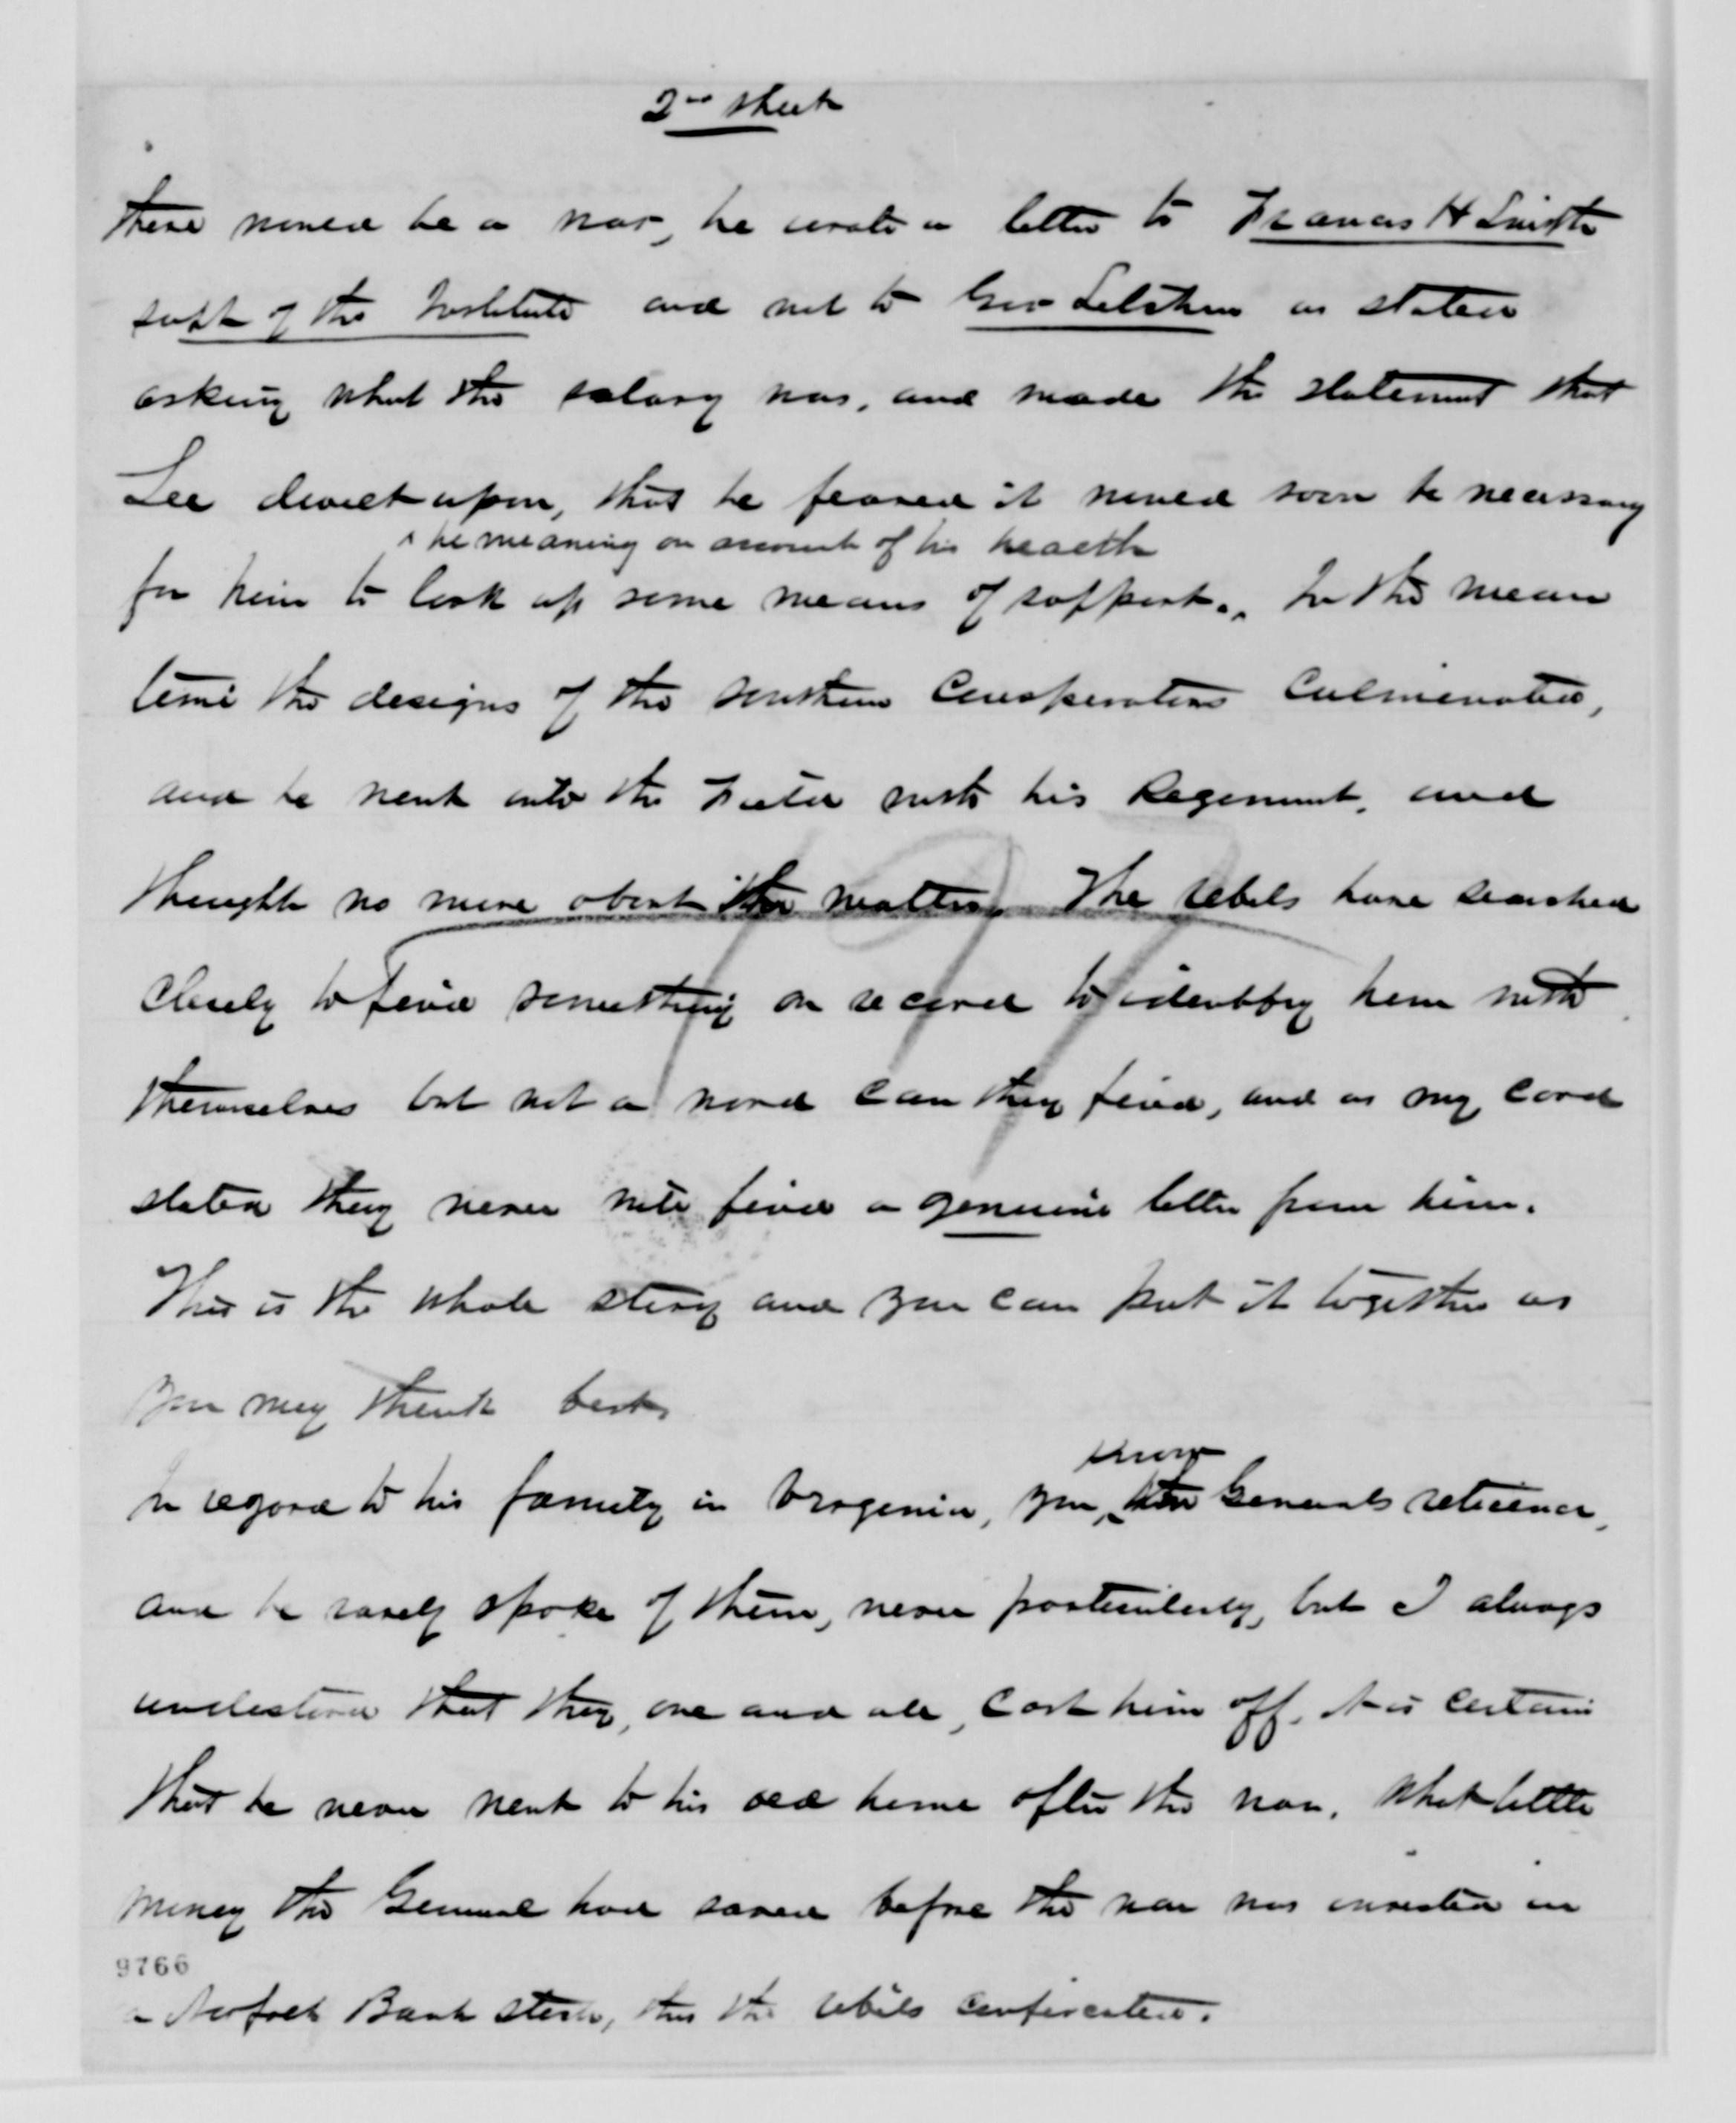 2nd sheet
there would be a war, he wrote a letter to Francis H Smith
supt of the Institute and not to Gov Letcher as stated
asking what the salary was, and made the statement that
Lee dwelt upon, that he feared it would soon be necessary
he meaning on account of his health
for him to look up some means of support. In the mean
time the designs of the southern Conspirators Culminated,
and he went into the Field with his Regiment, and
thought no more about the matter. The rebels have searched
Closely to find something on record to identify him with
themselves but not a word can they find, and as my card
stated they never will find a genuine letter from him.
This is the whole story and you can put it together as
you may think best,
In regard to his family in Virginia, you, the Generals reticence,
know
and he rarely spoke of them, never particularly, but I always
understood that they, one and all, cast him off. It is certain
that he never went to his old home after the war. What little
money the General had saved before the war was invested in
9766
a Norfolk Bank stock, this the rebels confiscated.
197